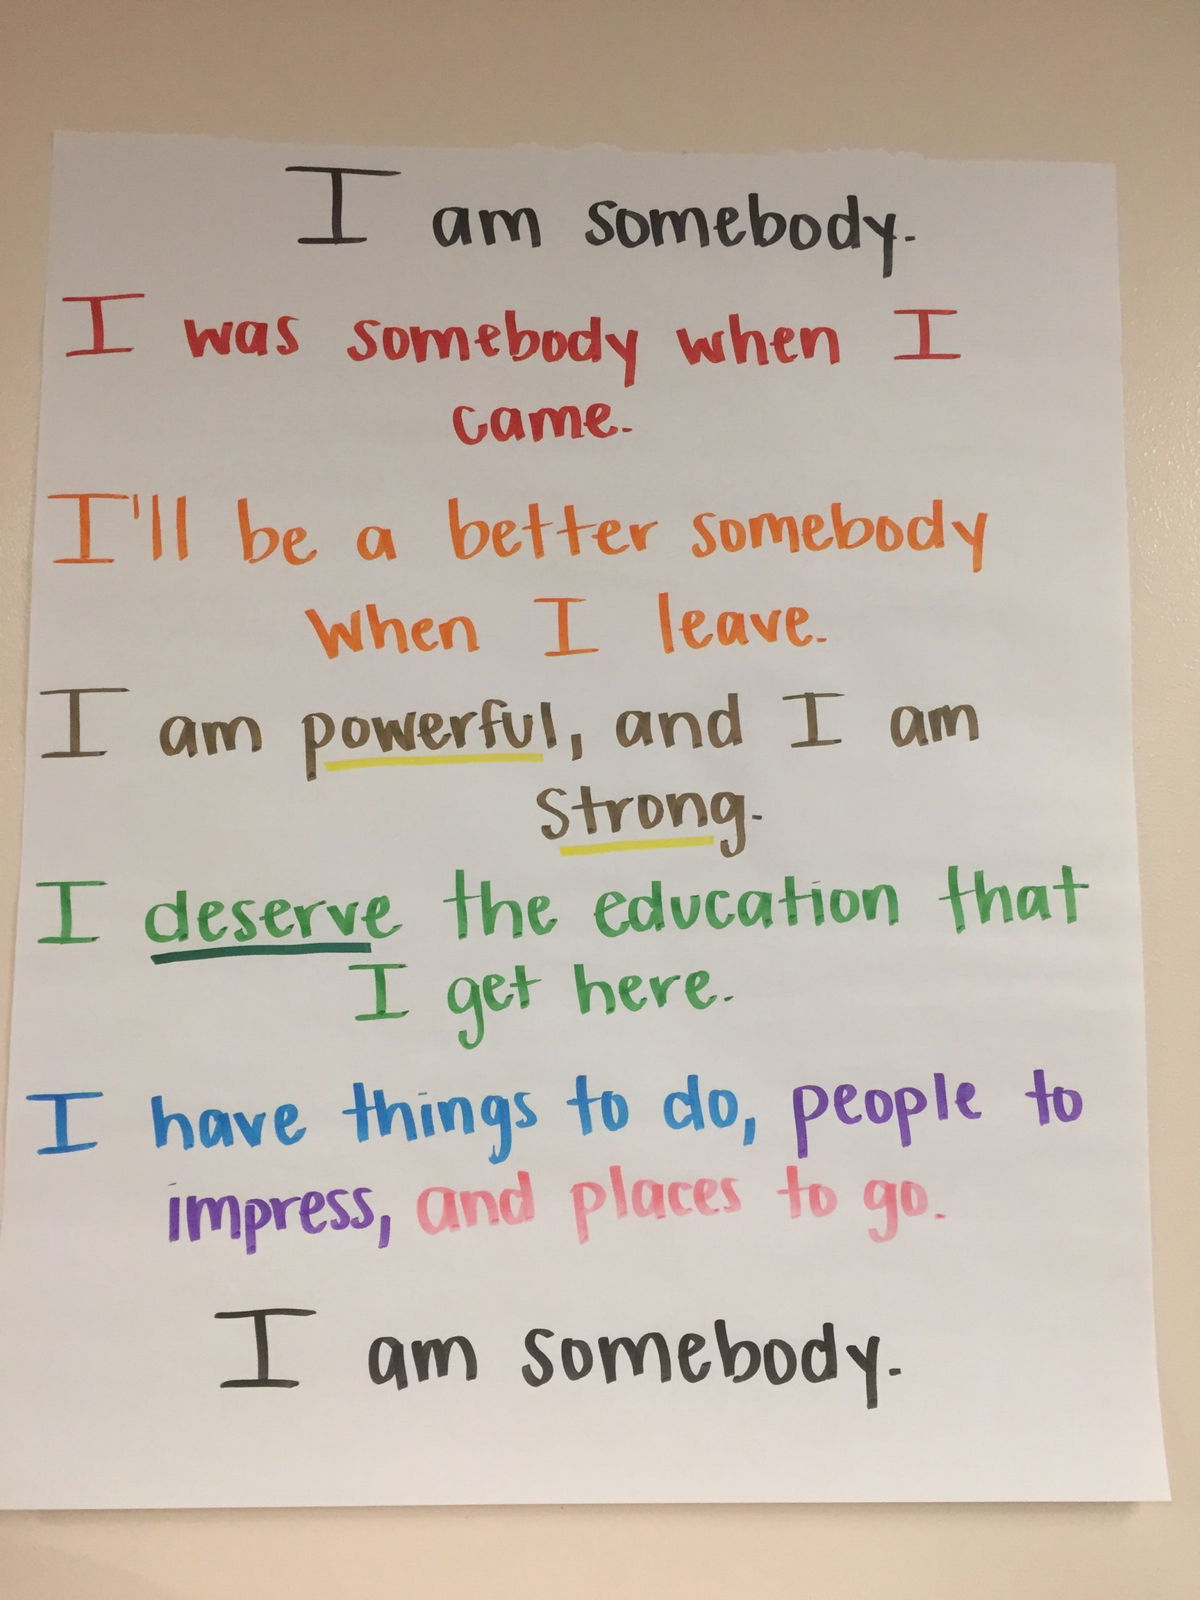 I am somebody.
I was somebody when I
came.
I'll be a better somebody
when I leave.
I am powerful, and I am
strong.
I deserve the education that
I get here.
I have things to do, people to
impress, and places to go.
I am somebody.